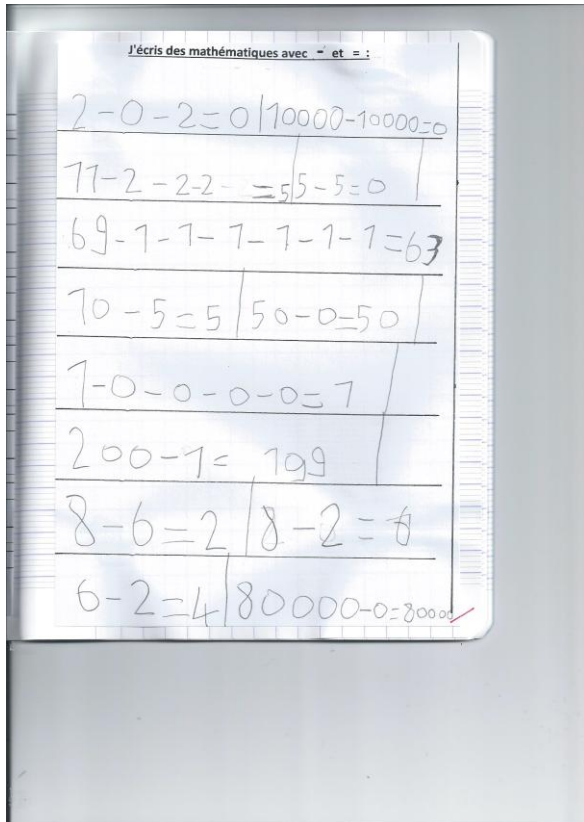 J'écris des mathématiques avec - et = :
2-0-2=0|10000-10000=0
11-2-2-2 =5|5-5=0
69-1-1-1-1-1-1=63
10-5=5|50-0=50
1-0-0-0-0=1
200-1= 199
8-6=2|8-2=6
6-2=4|80000-0=80000